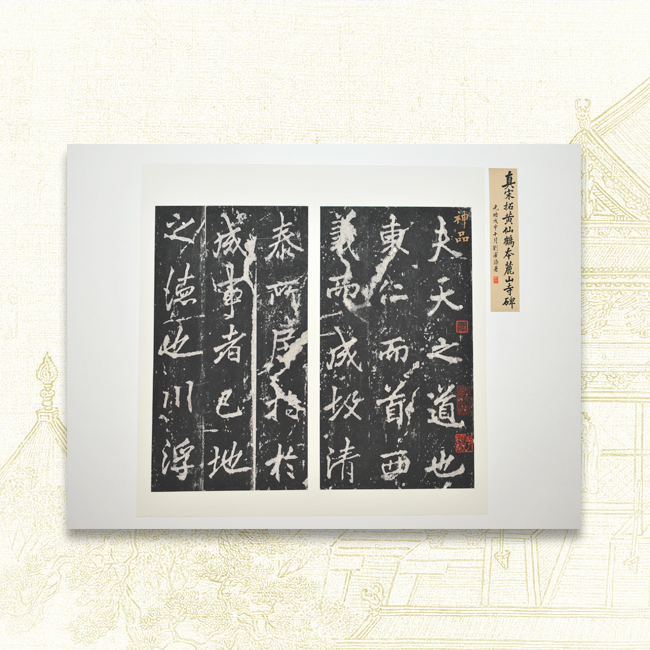 真宋拓黄仙鶴本麓山寺碑
神品
夫天之道也
東仁而首西
義而成故清
泰所居指於
成事者已地
之德也川浮